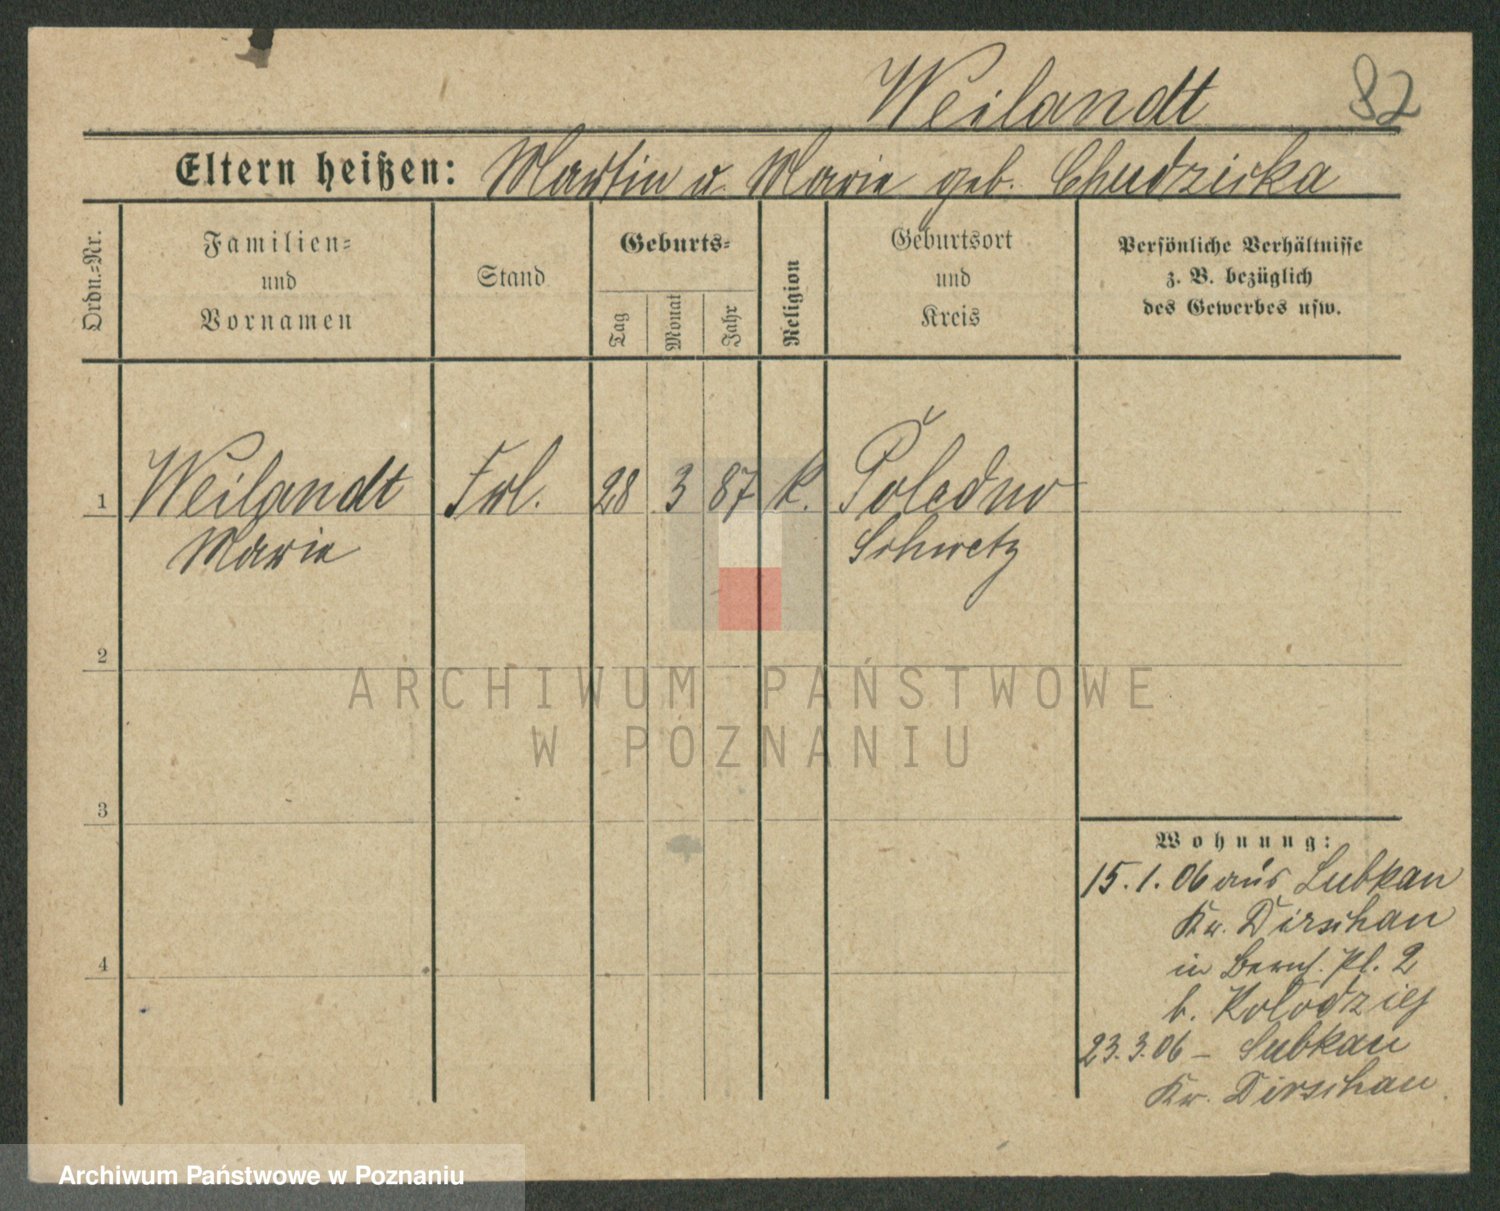 Weilandt 82
Eltern heißen: Martin u. Marie geb. Chudzicka
Ordn.-Nr.
Familien-
und
Vornamen
Stand
Geburts-
Tag
Monat
Jahr
Religion
Geburtsort
und
Kreis
Persönliche Verhältnisse
z. B. bezüglich
des Gewerbes usw.
1 Weilandt Frl. 28 3 87 k. Poledno
Marie Schwetz
2
3
4
Wohnung:
15.1.06 aus Subkau
Kr. Dirschau
in Bernh. Pl. 2
b. Kolodziej
23.3.06 – Subkau
Kr. Dirschau
ARCHIWUM PAŃSTWOWE
W POZNANIU
Archiwum Państwowe w Poznaniu